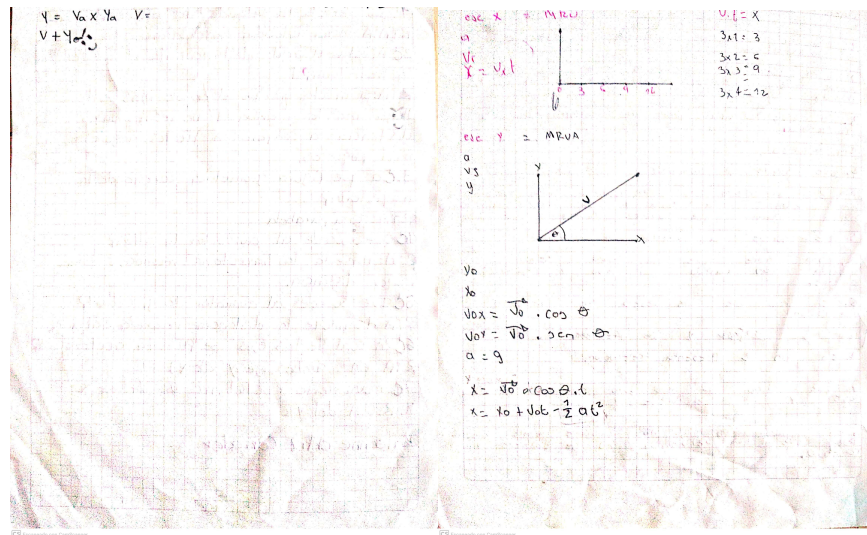 Y = Va x Ya V =
V + Yo
eje x = MRU
a
Vx
X = Vx t
0 3 6 9 12
V.t = x
3x1 = 3
3x2 = 6
3x3 = 9
3x4 = 12
eje Y = MRUA
a
y
Y
V
θ
X
Yo
Xo
Vox = Vo . cos θ
Voy = Vo . sen θ
a = g
X = Vo . cos θ . t
x = xo + Vot - 1/2 at²